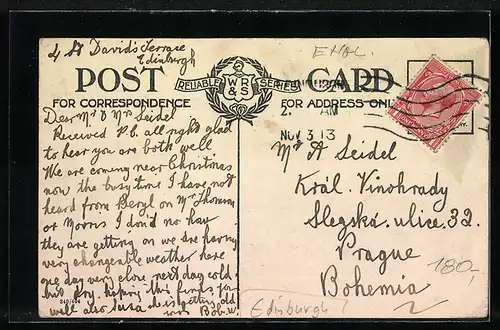 4 St David's Terrace
Edinburgh
ENGL.
POST CARD
RELIABLE WR&S SERIES
FOR CORRESPONDENCE
FOR ADDRESS ONLY
AM
NOV 3 13
Dear Mr & Mrs Seidel
Received P.C. all right glad
to hear you are both well
We are coming near Christmas
now the busy time I have not
heard from Beryl or Mr Thomson
or Morris I don't no how
they are getting on we are having
very changeable weather here
one day very close next day cold
but dry, hoping this finds you
well also getting old
Bob.W.
A Seidel
Král. Vinohrady
Slezská. ulice. 32.
Prague
Bohemia
180,-
Edinburgh